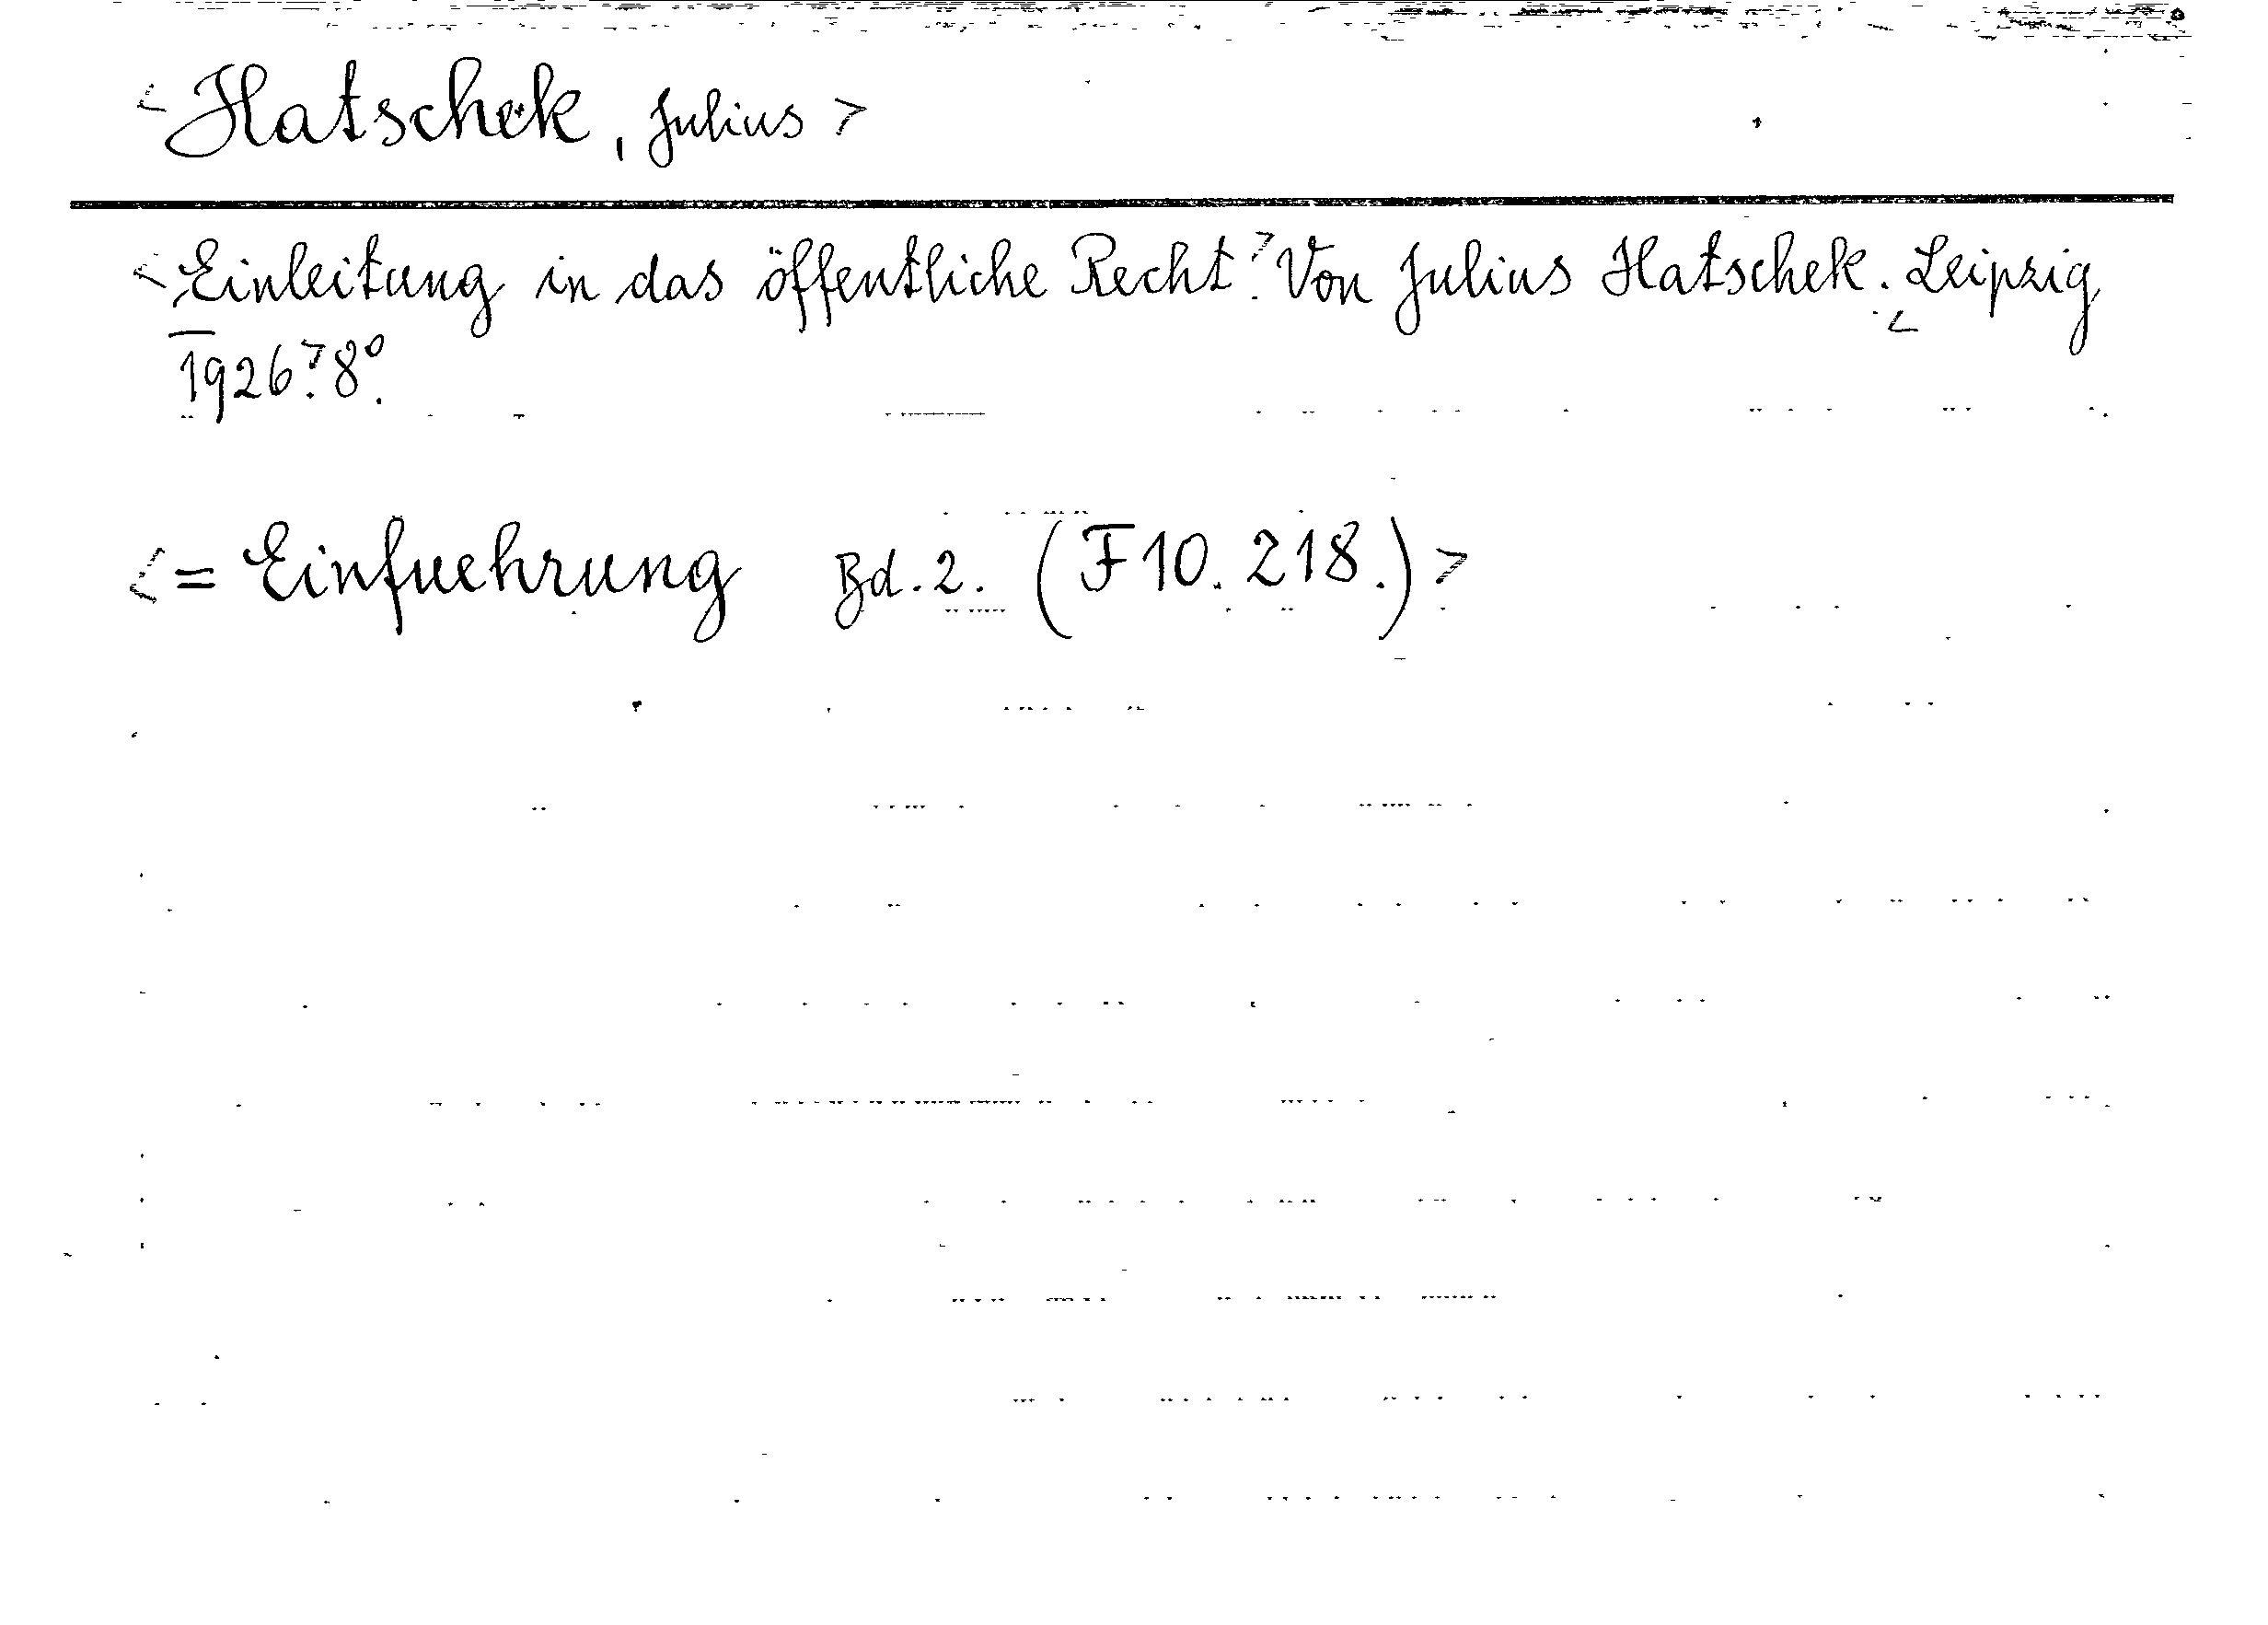 <Hatschek, Julius>
<Einleitung in das öffentliche Recht>. Von Julius Hatschek. <Leipzig
1926>. 8°.
<= Einfuehrung Bd. 2. (F10. 218.)>